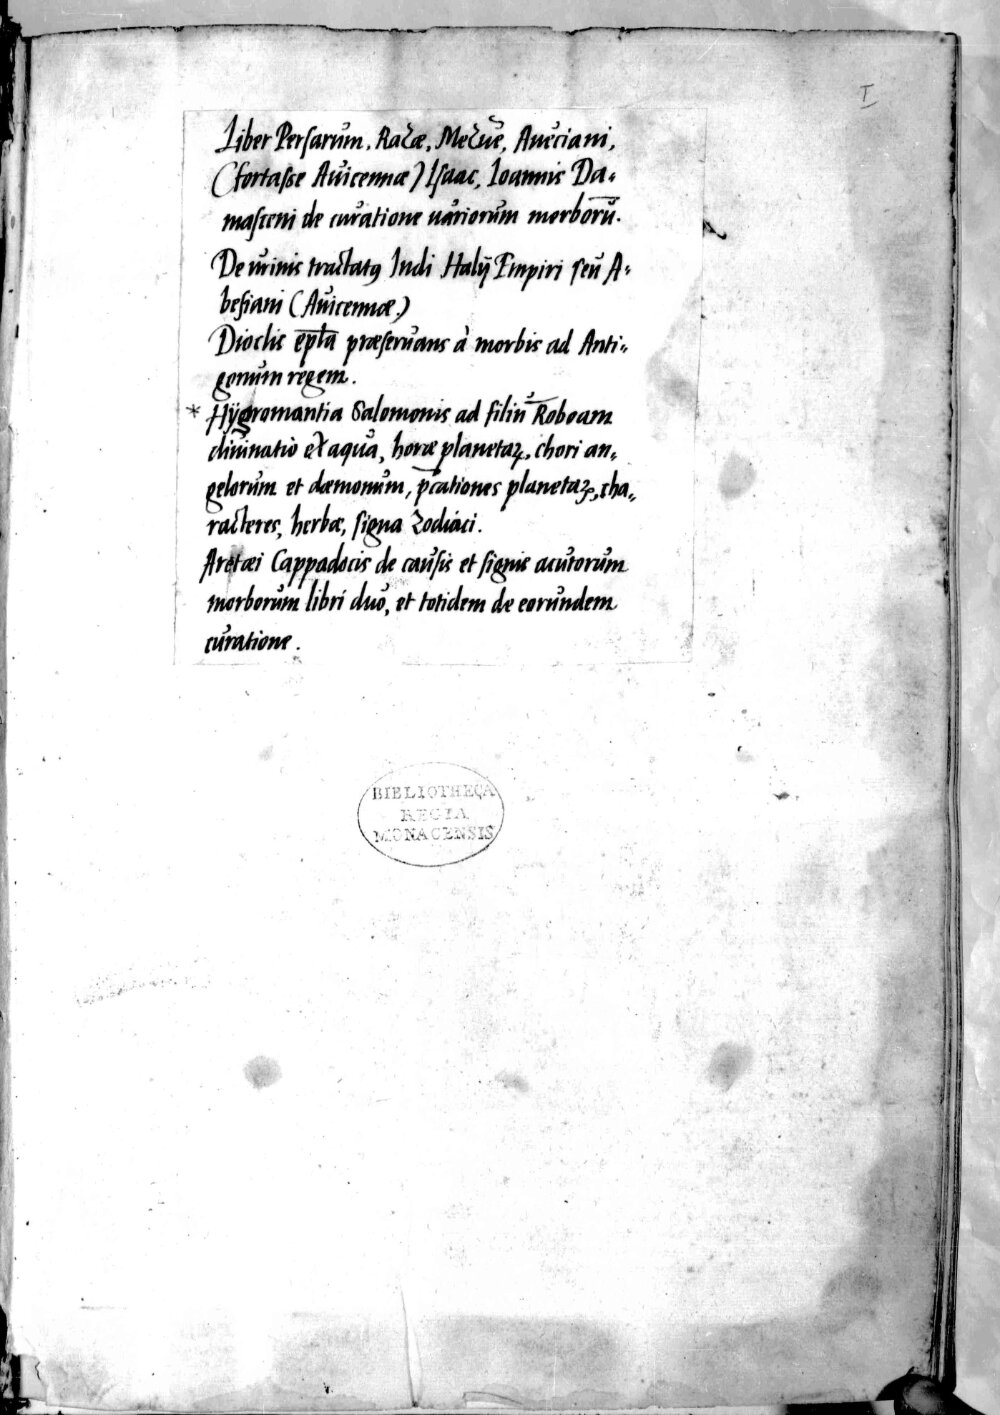 I
Liber Persarum, Razæ, Mezúe, Auéciani,
(fortasse Auicennæ) Isaac, Ioannis Da-
masceni de curatione uariorum morborū.
De urinis tractatꝰ Indi Halÿ Empiri seu A-
besiani (Auicennæ.)
Dioclis ep̄la præseruans à morbis ad Anti-
gonum regem.
* Hÿgromantia Salomonis ad filiū Roboam
diuinatio ex aqua, horæ planetaꝝ, chori an-
gelorum et dæmonum, p̄cationes planetaꝝ, cha-
racteres, herbæ, signa Zodiaci.
Aretæi Cappadocis de causis et signis acutorum
morborum libri duo, et totidem de eorundem
curatione.
BIBLIOTHECA
REGIA
MONACENSIS